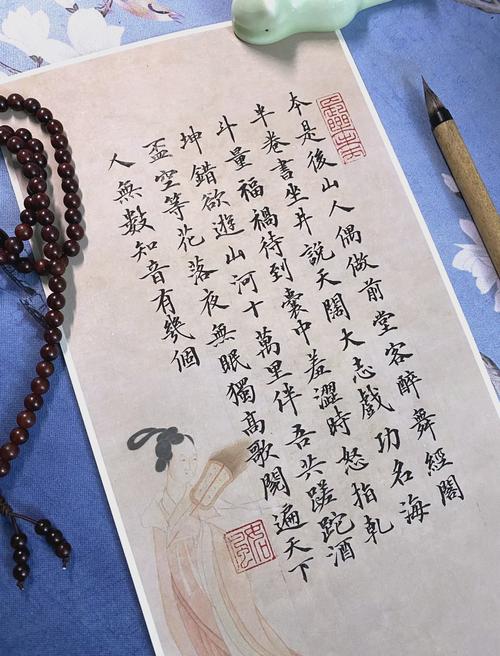 本是後山人偶做前堂客醉舞經閣
半卷書坐井說天闊大志戲功名海
斗量福禍待到囊中羞澀時怒指乾
坤錯欲遊山河十萬里伴吾共蹉跎酒
盃空等花落夜無眠獨高歌閱遍天下
人無數知音有幾個